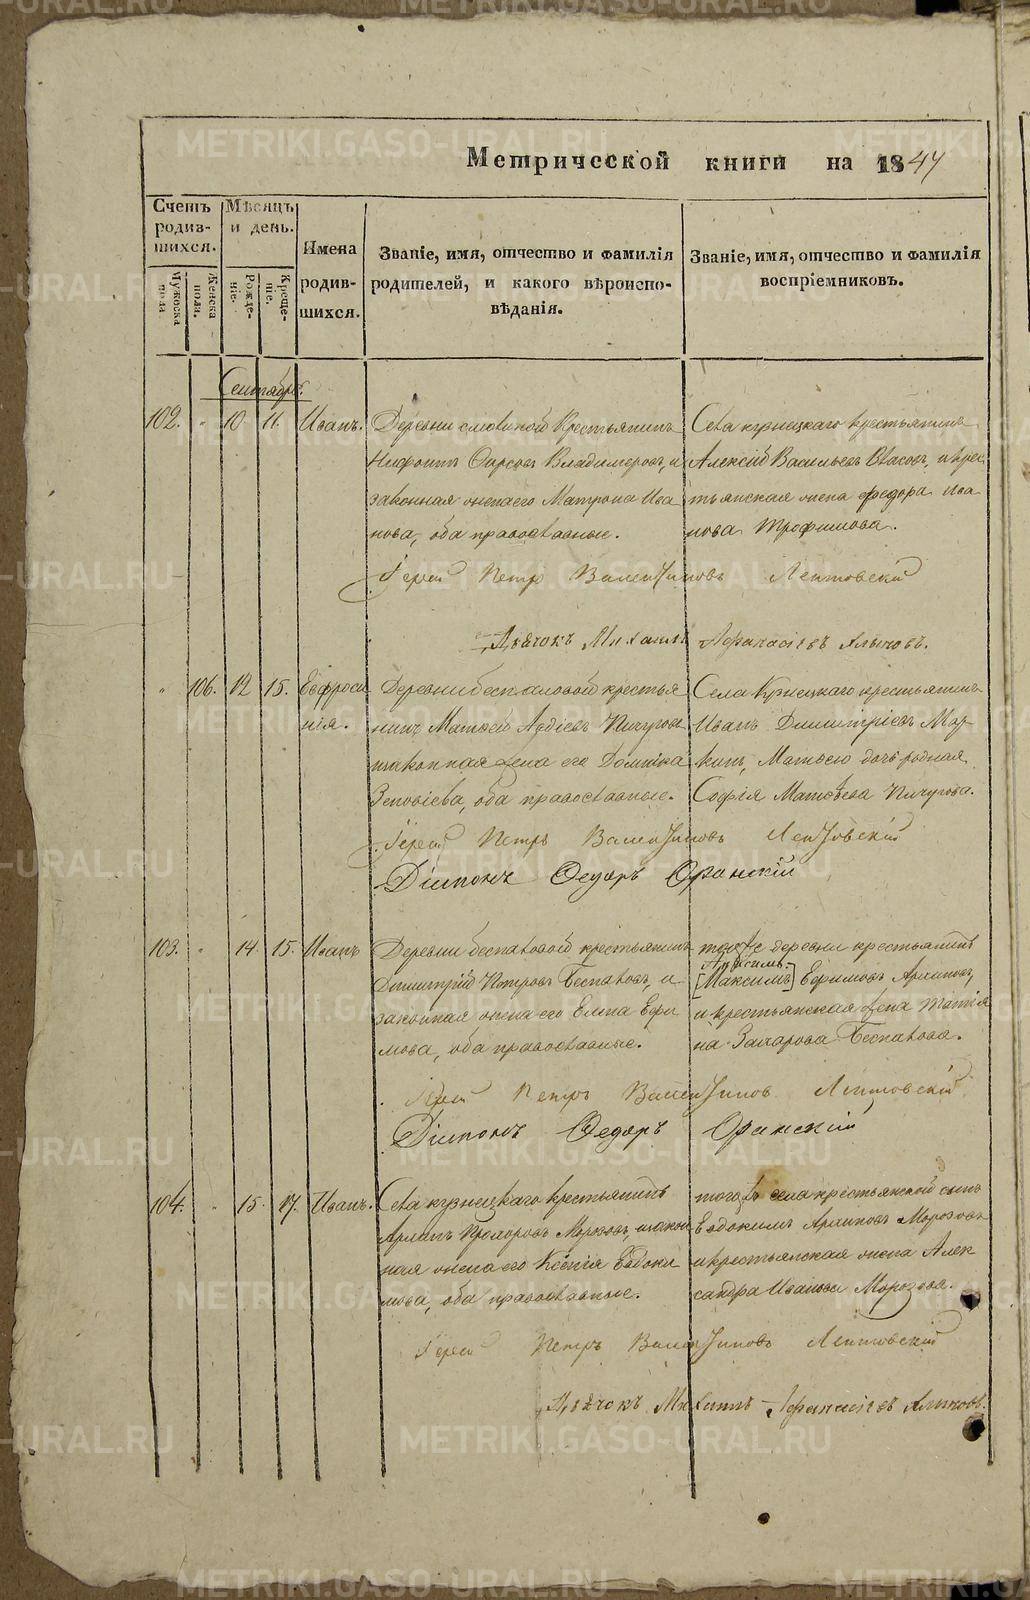 Метрической книги на 1844
Счетъ родив-шихся.
Мѣсяцъ и день.
Имена родив-шихся.
Званіе, имя, отчество и фамилія родителей, и какого вѣроиспо-вѣданія.
Званіе, имя, отчество и фамилія воспріемниковъ.
Мужеска пола
Женска пола.
Рожде-ніе.
Креще-ніе.
Сентябрь.
102. " 10. 11. Иванъ.
Деревни крестьянинъ
Владимеровъ, и
законная жена его Матрона Ива
нова, оба православные.
Села кузнецкаго крестьянинъ
Алексѣй Васильевъ Квасовъ, и крес
тьянская жена Федора Ива
нова Трофимова.
Іерей Петръ Валентиновъ Лептовскій
Дьячокъ Михаилъ Афанасіевъ Алычовъ.
" 106. 12 15. Евфроси
нія.
Деревни беспаловой крестья
нинъ Матвей Авдіевъ Пичуговъ
и законная жена его Домника
Зеновіева, оба православные.
Села Кузнецкаго крестьянинъ
Иванъ Димитріевъ Мор
кинъ, Матвею дочь родная
Софія Матвѣева Пичугова.
Іерей Петръ Валентиновъ Лептовскій
Діаконъ Федоръ Оранскій
103. " 14. 15. Иванъ
Деревни беспаловой крестьянинъ
Димитрій Петровъ Беспаловъ, и
законная жена его Елена Ефи
мова, оба православные.
тойже деревни крестьянинъ
Анисимъ.
[Максимъ] Ефимовъ Архиповъ,
и крестьянская жена Татія
на Захарова Беспалова.
Іерей Петръ Валентиновъ Лептовскій
Діаконъ Федоръ Оранскій
104. " 15. 17. Иванъ.
Села кузнецкаго крестьянинъ
Архипъ Прохоровъ Морозовъ, и закон
ная жена его Ксенія Евдоки
мова, оба православные.
тогожъ села крестьянской сынъ
Евдокимъ Архиповъ Морозовъ
и крестьянская жена Алек
сандра Иванова Морозова.
Іерей Петръ Валентиновъ Лептовскій
Дьячокъ Михаилъ Афанасіевъ Алычовъ.
METRIKI.GASO-URAL.RU